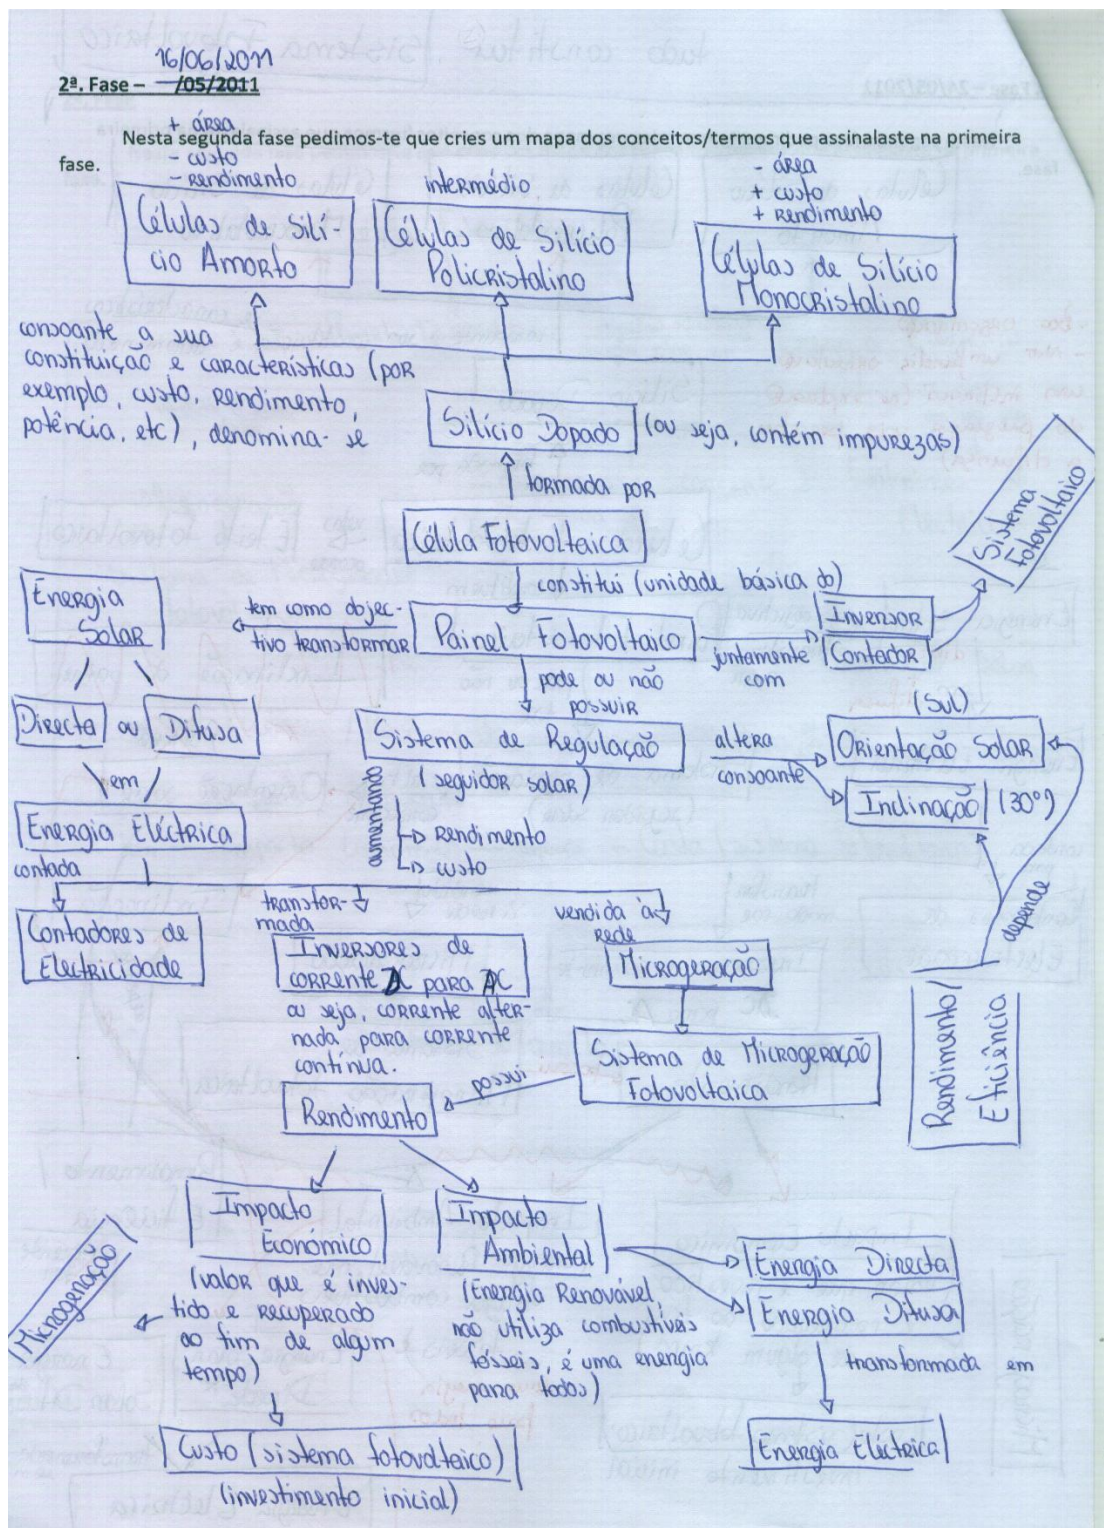 16/06/2011
2ª. Fase – /05/2011
Nesta segunda fase pedimos-te que cries um mapa dos conceitos/termos que assinalaste na primeira
fase.
+ área
- custo
- rendimento
Células de Silí-
cio Amorfo
intermédio
Células de Silício
Policristalino
- área
+ custo
+ rendimento
Células de Silício
Monocristalino
consoante a sua
constituição e características (por
exemplo, custo, rendimento,
potência, etc), denomina-se
Silício Dopado
(ou seja, contém impurezas)
formada por
Célula Fotovoltaica
constitui (unidade básica do)
Sistema
Fotovoltaico
Energia
Solar
tem como objec-
tivo transformar
Painel Fotovoltaico
juntamente
com
Inversor
Contador
pode ou não
possuir
Directa
ou
Difusa
Sistema de Regulação
(seguidor solar)
altera
consoante
(Sul)
Orientação Solar
Inclinação
(30º)
em
aumentando
rendimento
custo
Energia Eléctrica
contada
Contadores de
Electricidade
transfor-
mada
Inversores de
corrente DC para AC
ou seja, corrente alter-
nada para corrente
contínua.
vendida à
rede
Microgeração
depende
Rendimento/
Eficiência
Sistema de Microgeração
Fotovoltaica
possui
Rendimento
Impacto
Económico
(valor que é inves-
tido e recuperado
ao fim de algum
tempo)
Microgeração
Impacto
Ambiental
(Energia Renovável,
não utiliza combustíveis
fósseis, é uma energia
para todos)
Energia Directa
Energia Difusa
transformada em
Energia Eléctrica
Custo (sistema fotovoltaico)
(investimento inicial)